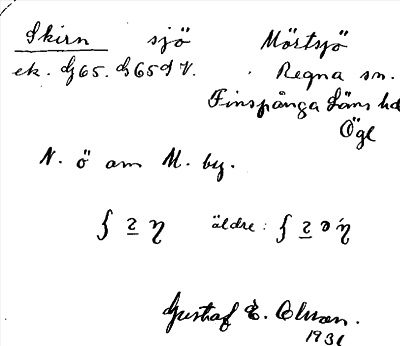 Skirn sjö Mörtsjö
ek. dj 65. dj 65 d V. Regna sn.
Finspånga läns hd
Ögl
N. ö om M. by.
äldre:
Gustaf E. Olsson.